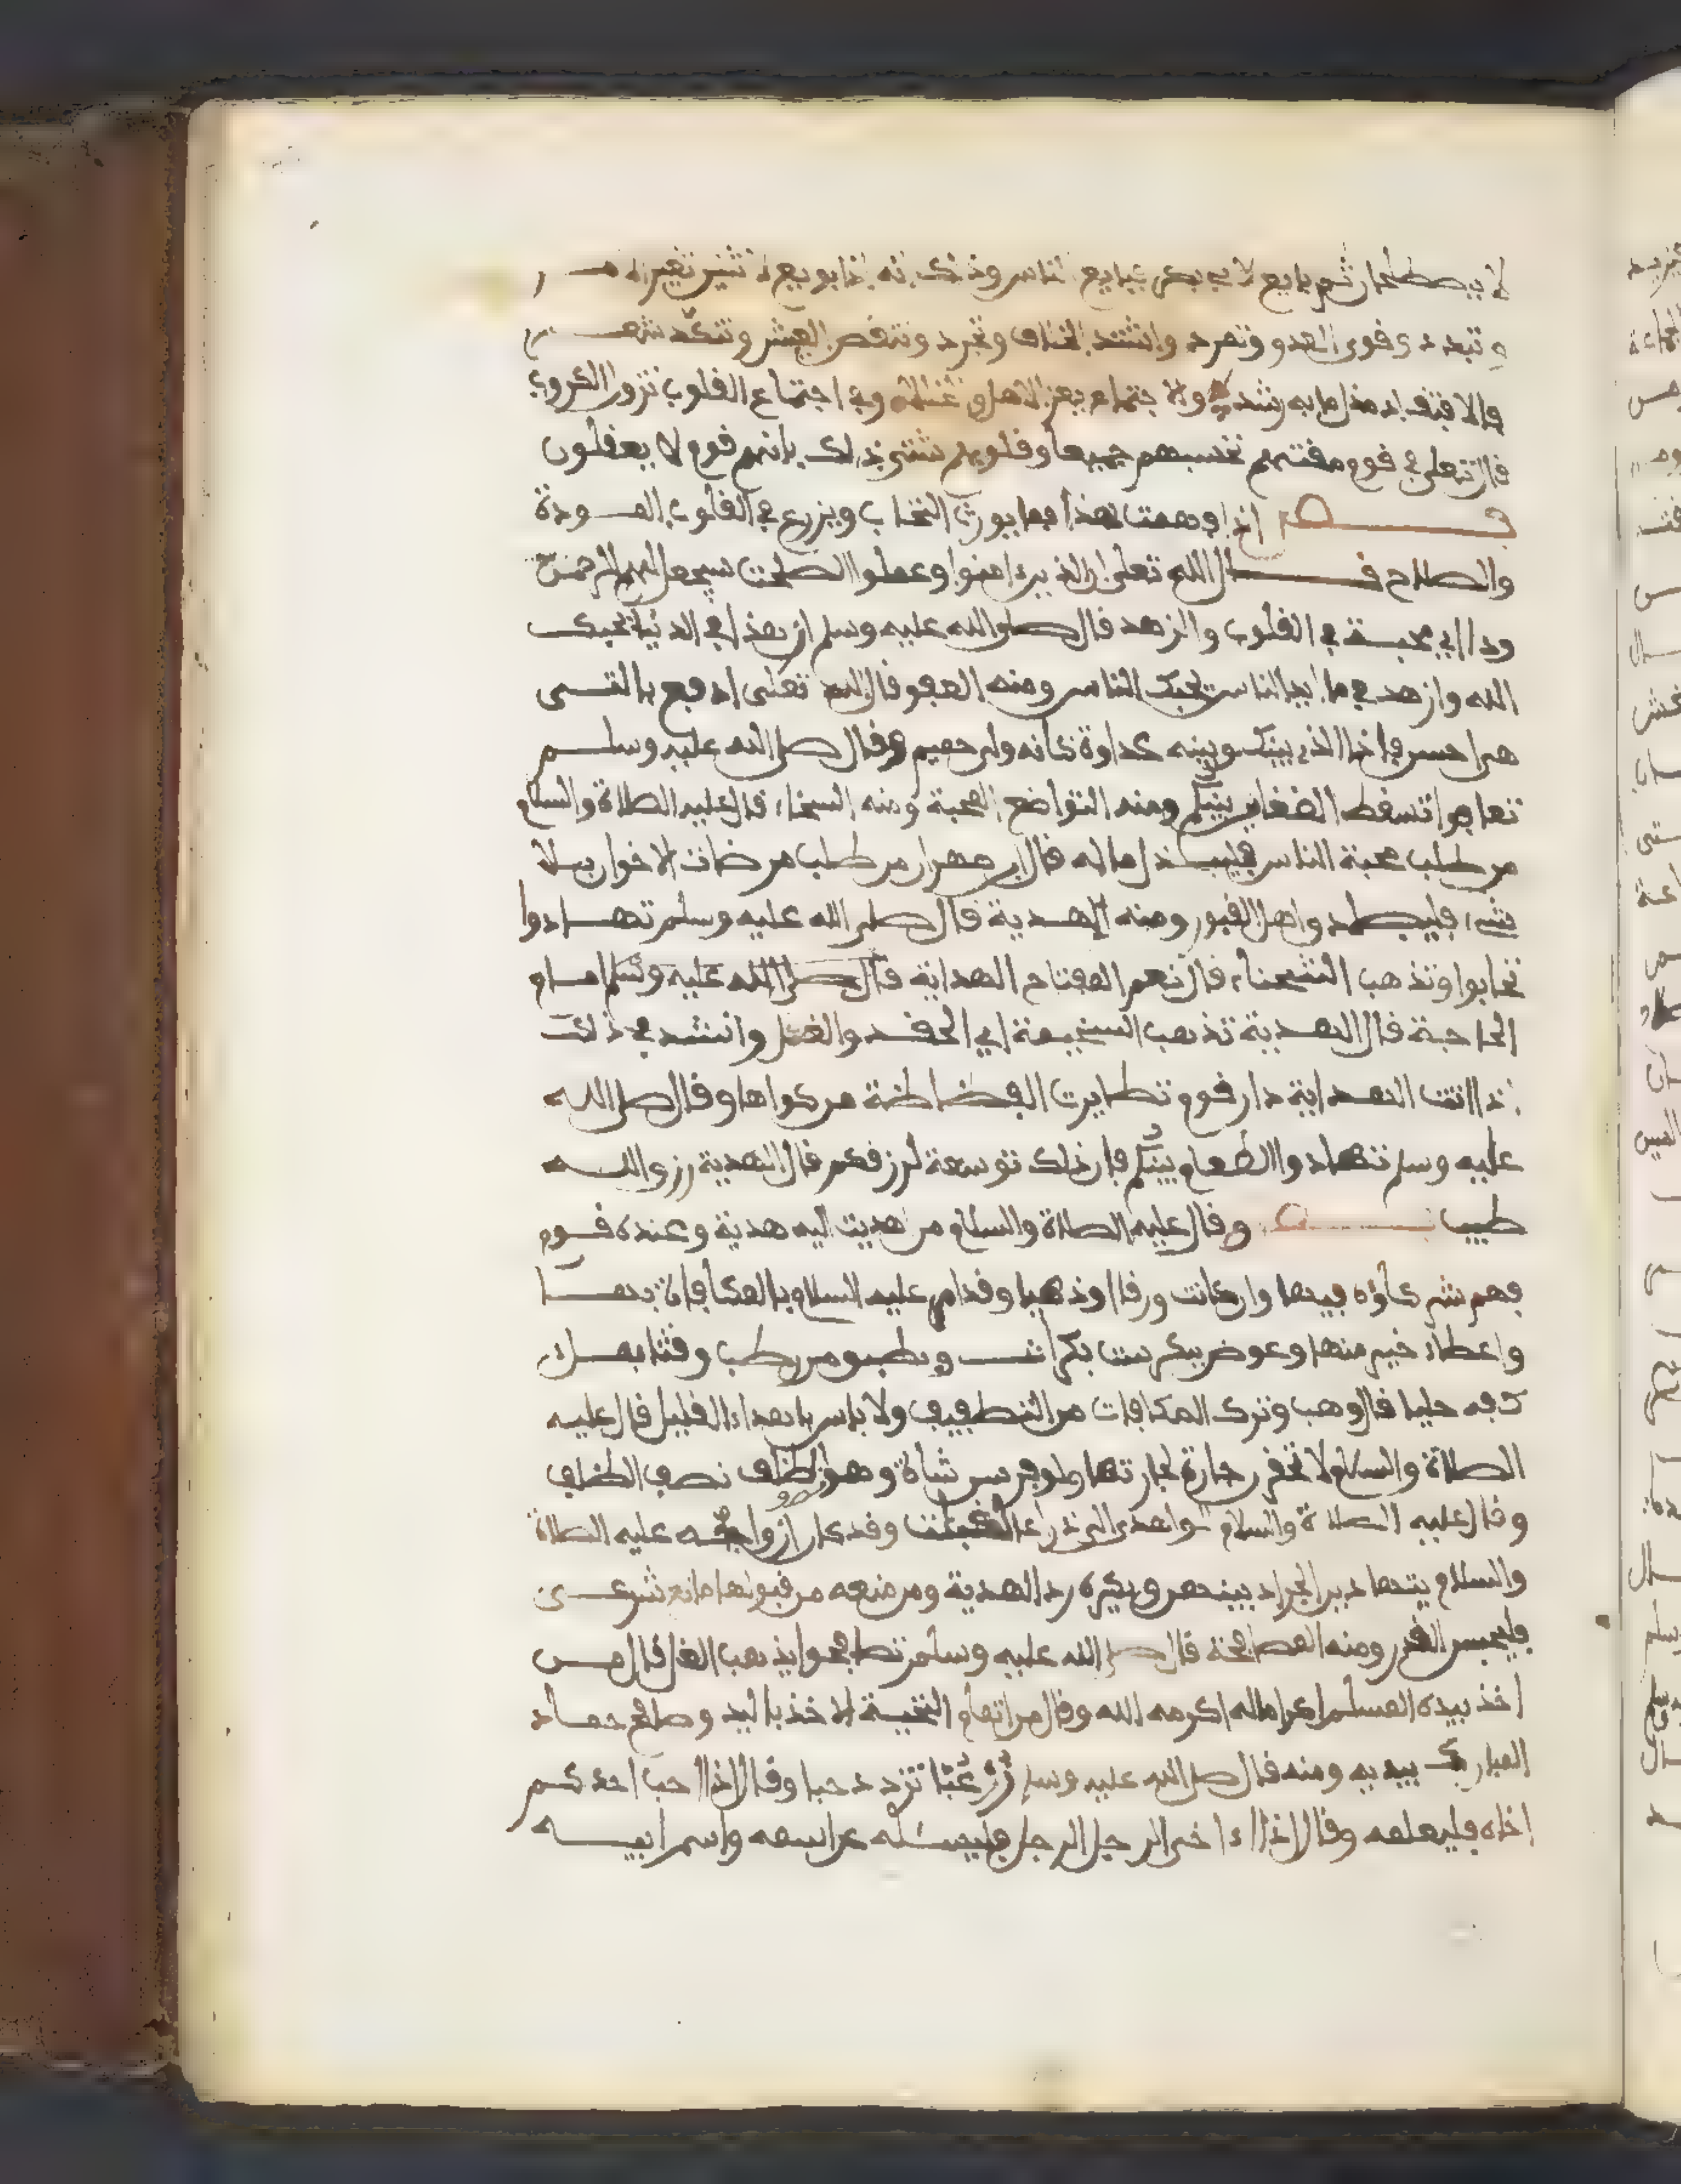 لا يصطلحان ثم بايع لابي بكر فبايع الناس وذلك انه اذا بويع لاثنين تغير الامر
و تبدد وقوى العدو وتمرد واشتد الخلاف وتجرد وتنغص العيش وتنكد
والاجتماع يعز الاهل وفي اجتماع القلوب تزول الكروب
قال تعلى في قوم مقتهم تحسبهم جميعا وقلوبهم شتى ذلك بانهم قوم لا يعقلون
اذا فهمت هذا فما يورث التحاب ويزرع في القلوب المودة
والصلاح قال الله تعلى ان الذين ءامنوا وعملوا الصلحت سيجعل لهم الرحمن
ودا اي محبة في القلوب والزهد قال صلى الله عليه وسلم ازهد في الدنيا يحبك
الله وازهد في ما بيد الناس يحبك الناس ومنه العفو قال الله تعلى ادفع بالتي
هي احسن فاذا الذي بينك وبينه عداوة كانه ولي حميم وقال صلى الله عليه وسلم
تعافوا تسقط الضغاين بينكم ومنه التواضع المحبة ومنه السخاء قال عليه الصلاة والسلام
من طلب محبة الناس فليبذل ماله قال ابن مهران من طلب مرضات الاخوان بلا
شيء فليصادق اهل القبور ومنه الهدية قال صلى الله عليه وسلم تهادوا
تحابوا وتذهب الشحناء قال نعم المفتاح الهداية قال صلى الله عليه وسلم امام
الحاجة قال الهدية تذهب السخيمة اي الحقد والغل وانشد في ذلك
اذا اتت الهداية دار قوم تطايرت الفظاظة من كواها وقال صلى الله
عليه وسلم تهادوا الطعام بينكم فان ذلك توسعة لرزقكم قال الهدية رزق الله
طيب وقال عليه الصلاة والسلام من اهديت اليه هدية وعنده قوم
فهم شركاؤه فيها وان كانت ورقا او ذهبا وقد امر عليه السلام بالمكافاة بها
واعطاء خير منها وعوض ببكر ست بكرات وبطبق من رطب وقثاء بملء
كفه حليا قال وهب وترك المكافات من التطفيف ولا باس باهداء القليل قال عليه
الصلاة والسلام لا تحقرن جارة لجارتها ولو فرسن شاة وهو الظلف نصف الظلف
وقال عليه الصلاة والسلام لو اهدي الي ذراع لقبلت وقد كان ازواجه عليه الصلاة
والسلام يتهادين الجراد بينهن ويكره رد الهدية ومن منعه من قبولها مانع شرعي
فليحسن العذر ومنه المصافحة قال صلى الله عليه وسلم تصافحوا يذهب الغل قال من
اخذ بيده المسلم اكراما له اكرمه الله وقال من اتمام التحية الاخذ باليد وصافح حماد
المبارك بيديه ومنه قال صلى الله عليه وسلم زر غبا تزدد حبا وقال اذا احب احدكم
اخاه فليعلمه وقال اذا ءاخى الرجل الرجل فليسئله عن اسمه واسم ابيه